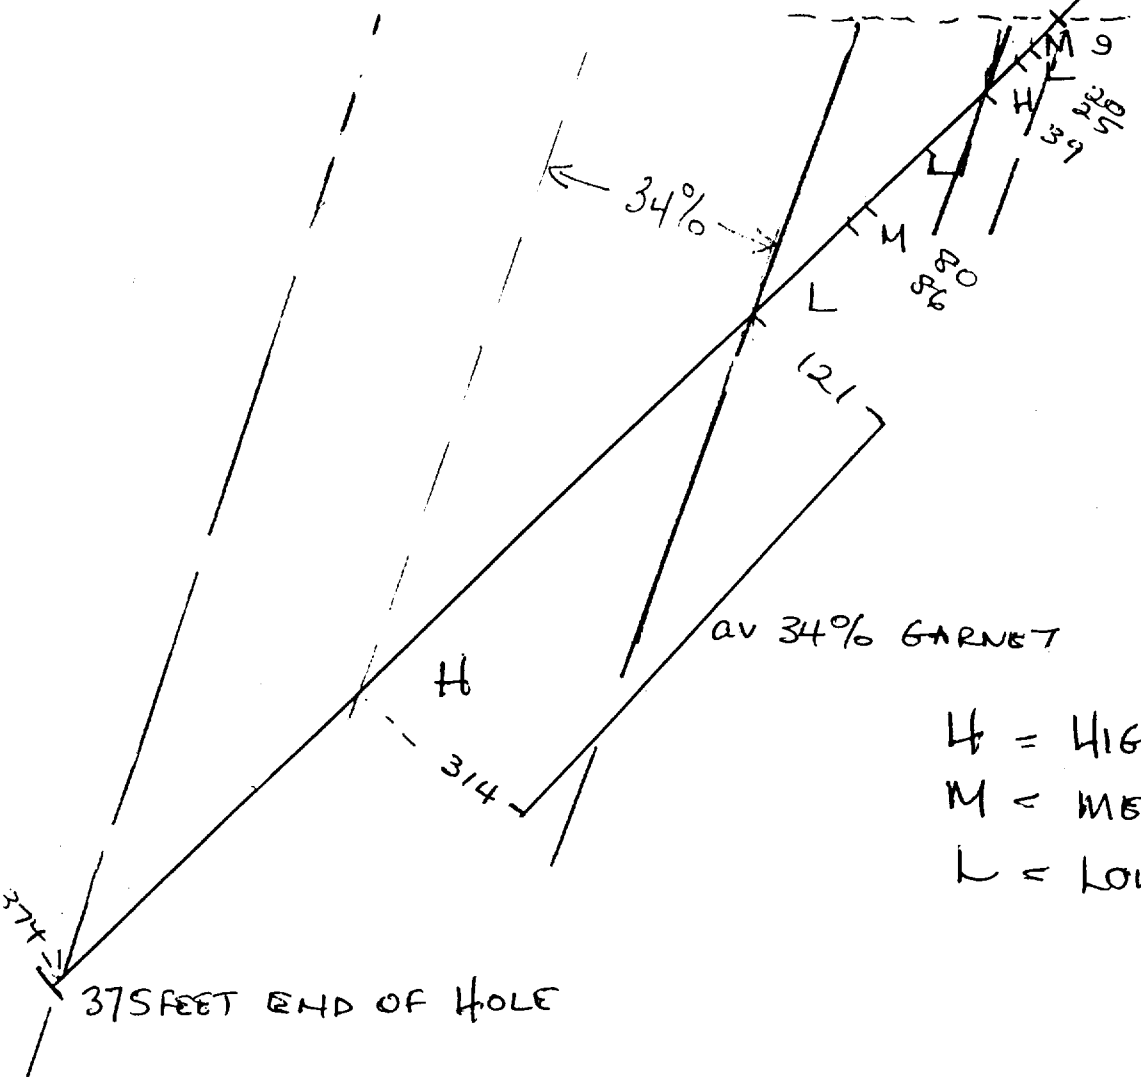 M 9
L
20
H 25
39
L
34%
M 80
86
L
121
av 34% GARNET
H
314
H = HIG
M = ME
L = LOW
374
375 FEET END OF HOLE